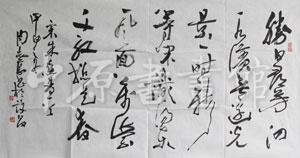 勝日尋芳泗
水濱無邊光
景一時新
等閒識得東
風面萬紫
千紅總是春
宋朱熹春日
中原書畫館